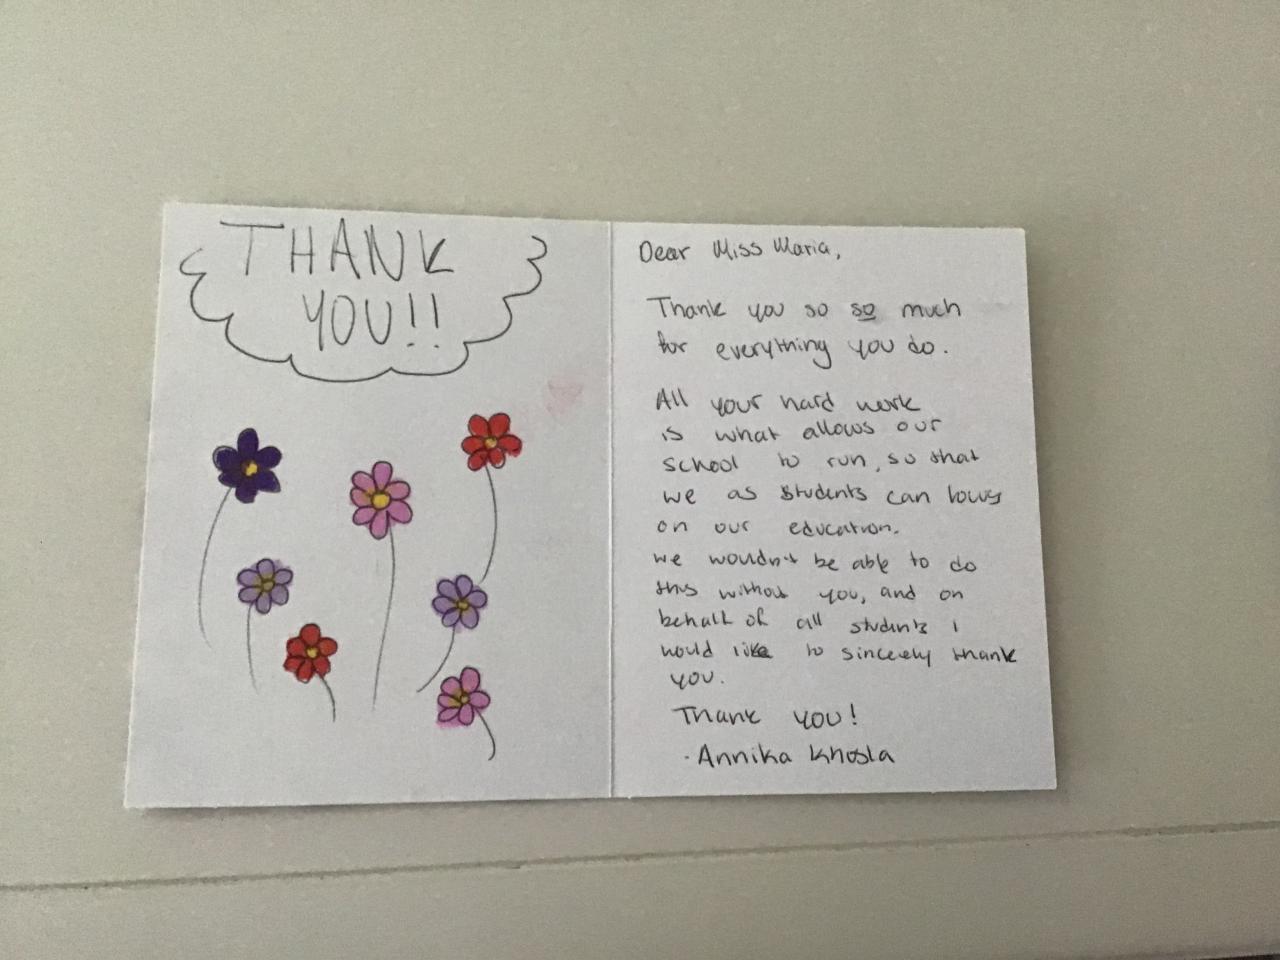 THANK
YOU!!
Dear Miss Maria,
Thank you so so much
for everything you do.
All your hard work
is what allows our
school to run, so that
we as students can focus
on our education.
we wouldn't be able to do
this without you, and on
behalf of all students i
would like to sincerely thank
you.
Thank you!
- Annika Khosla